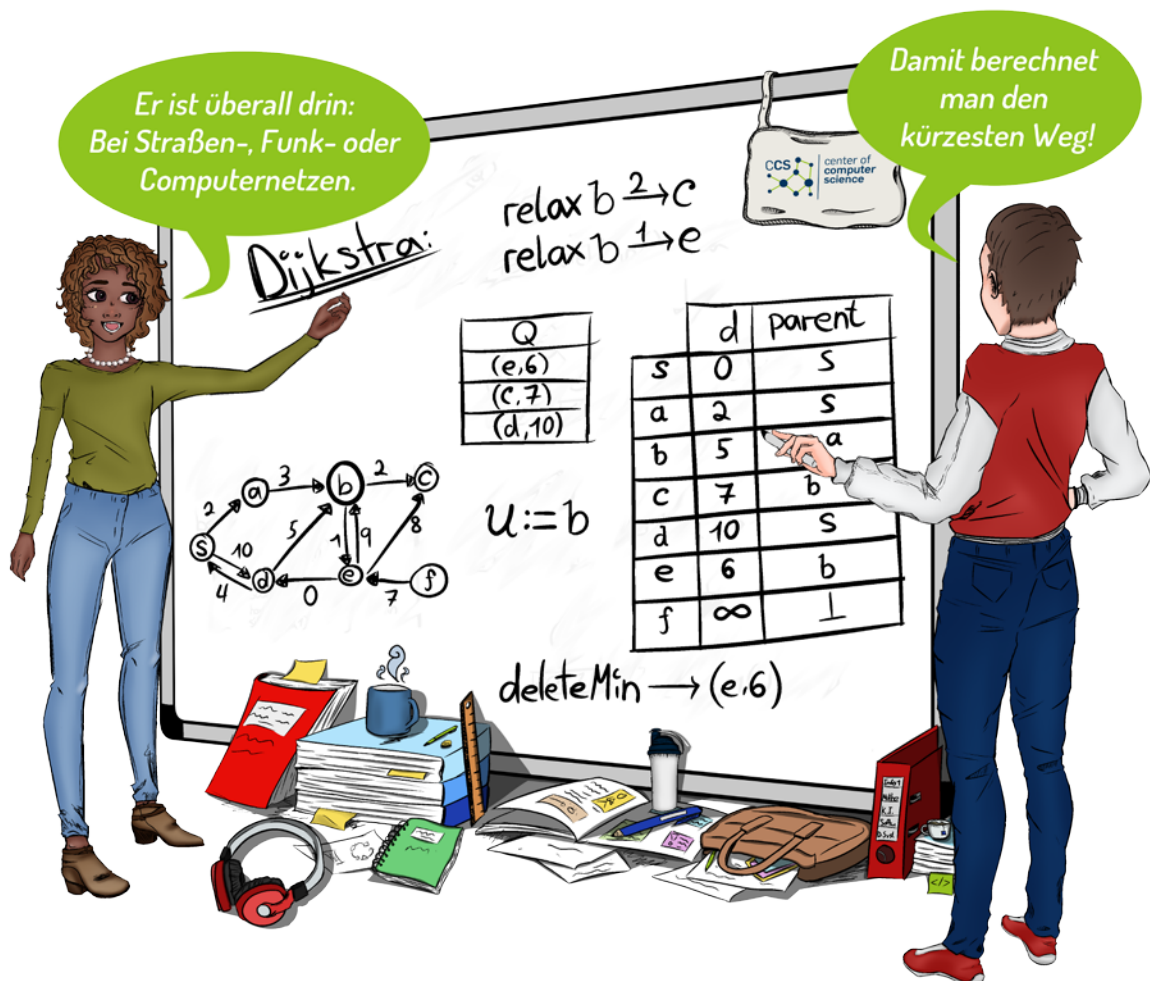 Er ist überall drin:
Bei Straßen-, Funk- oder
Computernetzen.
Damit berechnet
man den
kürzesten Weg!
CCS
center of
computer
science
Dijkstra:
relax b 2→ c
relax b 1→ e
Q
(e,6)
(c,7)
(d,10)
d parent
s 0 s
a 2 s
b 5 a
c 7 b
d 10 s
e 6 b
f ∞ ⊥
a 3 b 2 c
2 5 1 9 8
s 10 d e f
4 0 7
u:=b
deleteMin → (e,6)
K.I.
</>